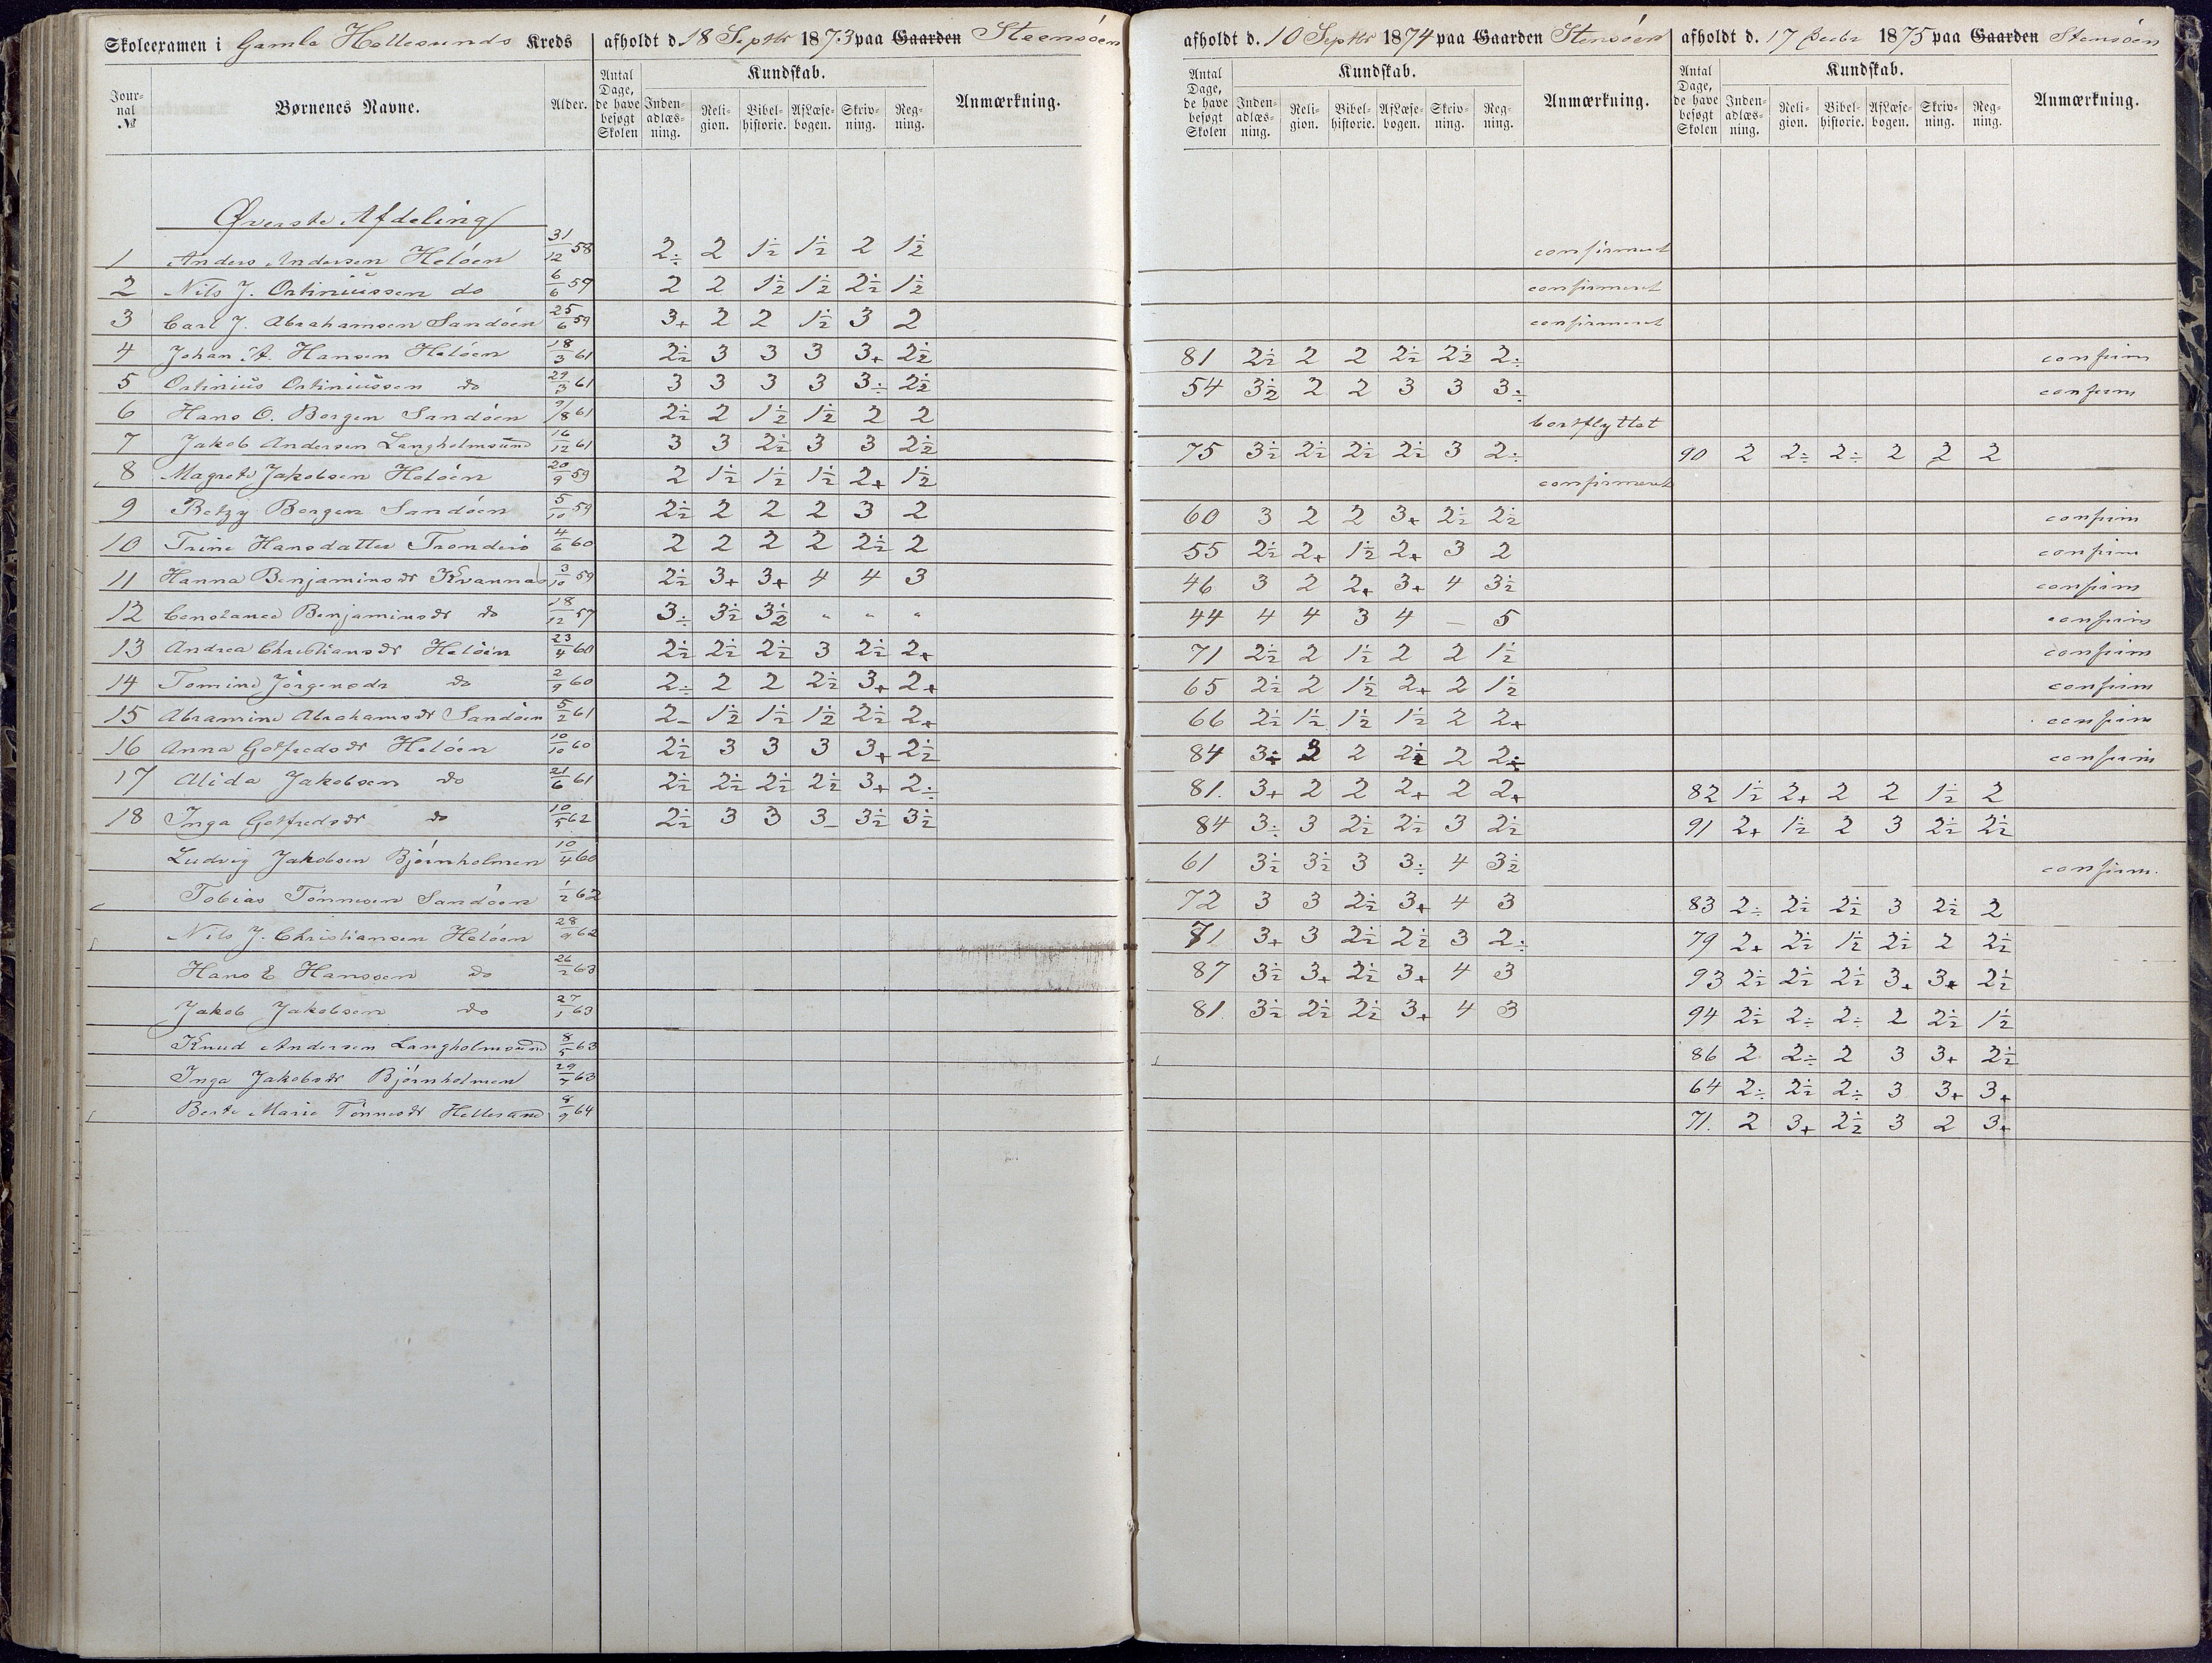 Skoleexamen i Gamle Hellesunds Kreds afholdt d. 18 Septbr 1873 paa Gaarden Steensøen afholdt d. 10 Septbr 1874 paa Gaarden Stensøen afholdt d. 17 1875 paa Gaarden Stensøen
Jour-nal № Børnenes Navne. Alder. Antal Dage, de have besøgt Skolen Kundskab. Inden-adlæs-ning. Reli-gion. Bibel-historie. Af Læse-bogen. Skriv-ning. Reg-ning. Anmærkning. Antal Dage, de have besøgt Skolen Kundskab. Inden-adlæs-ning. Reli-gion. Bibel-historie. Af Læse-bogen. Skriv-ning. Reg-ning. Anmærkning. Antal Dage, de have besøgt Skolen Kundskab. Inden-adlæs-ning. Reli-gion. Bibel-historie. Af Læse-bogen. Skriv-ning. Reg-ning. Anmærkning.
Øverste Afdeling
1 Anders Andersen Heløen 31/12 58 2÷ 2 1½ 1½ 2 1½ confirmeret
2 Nils J. Ortiniussen do 6/6 59 2 2 1½ 1½ 2½ 1½ confirmeret
3 Carl J. Abrahamsen Sandøen 25/6 59 3+ 2 2 1½ 3 2 confirmeret
4 Johan A. Hansen Heløen 18/3 61 2½ 3 3 3 3+ 2½ 81 2½ 2 2 2½ 2½ 2÷ confirm
5 Ortinius Ortiniussen do 29/3 61 3 3 3 3 3÷ 2½ 54 3½ 2 2 3 3 3÷ confirm
6 Hans O. Borgen Sandøen 9/8 61 2½ 2 1½ 1½ 2 2 bortflyttet
7 Jakob Andersen Langholmsund 16/12 61 3 3 2½ 3 3 2½ 75 3½ 2½ 2½ 2½ 3 2÷ 90 2 2÷ 2÷ 2 2 2
8 Magrete Jakobsen Heløen 20/9 59 2 1½ 1½ 1½ 2+ 1½ confirmeret
9 Betzy Borgen Sandøen 5/10 59 2½ 2 2 2 3 2 60 3 2 2 3+ 2½ 2½ confirm
10 Trine Hansdatter Trønderø 4/6 60 2 2 2 2 2½ 2 55 2½ 2+ 1½ 2+ 3 2 confirm
11 Hanna Benjaminsdr Kvannes 3/10 59 2½ 3+ 3+ 4 4 3 46 3 2 2+ 3+ 4 3½ confirm
12 Constance Benjaminsdr do 18/12 57 3÷ 3½ 3½ " " " 44 4 4 3 4 — 5 confirm
13 Andrea Christiansdr Heløen 23/4 60 2½ 2½ 2½ 3 2½ 2+ 71 2½ 2 1½ 2 2 1½ confirm
14 Tomine Jørgensdr do 2/9 60 2÷ 2 2 2½ 3+ 2+ 65 2½ 2 1½ 2+ 2 1½ confirm
15 Abramine Abrahamsdr Sandøen 5/2 61 2- 1½ 1½ 1½ 2½ 2+ 66 2½ 1½ 1½ 1½ 2 2+ confirm
16 Anna Gotfredsdr Heløen 10/10 60 2½ 3 3 3 3+ 2½ 84 3÷ 3 2 2½ 2 2÷ confirm
17 Alida Jakobsen do 21/6 61 2½ 2½ 2½ 2½ 3+ 2÷ 81. 3+ 2 2 2+ 2 2+ 82 1½ 2+ 2 2 1½ 2
18 Inga Gotfredsdr do 10/5 62 2½ 3 3 3- 3½ 3½ 84 3÷ 3 2½ 2½ 3 2½ 91 2+ 1½ 2 3 2½ 2½
Ludvig Jakobsen Bjørnholmen 10/4 60 61 3½ 3½ 3 3÷ 4 3½ confirm.
Tobias Tønnesen Sandøen 1/2 62 72 3 3 2½ 3+ 4 3 83 2÷ 2½ 2½ 3 2½ 2
Nils J. Christiansen Heløen 28/9 62 71 3+ 3 2½ 2½ 3 2÷ 79 2+ 2½ 1½ 2½ 2 2½
Hans E Hanssen do 26/2 63 87 3½ 3+ 2½ 3+ 4 3 93 2½ 2½ 2½ 3+ 3+ 2½
Jakob Jakobsen do 27/1 63 81 3½ 2½ 2½ 3+ 4 3 94 2½ 2÷ 2÷ 2 2½ 1½
Knud Andersen Langholmsund 8/5 63 86 2 2÷ 2 3 3+ 2½
Inga Jakobsdr Bjørnholmen 29/7 63 64 2÷ 2½ 2÷ 3 3+ 3+
Berte Marie Tønnesdr Hellesund 8/9 64 71. 2 3+ 2½ 3 2 3+